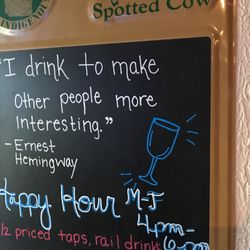 Spotted Cow
"I drink to make
other people more
interesting."
- Ernest
Hemingway
Happy Hour M-F
4pm-
6pm
1/2 priced taps, rail drink